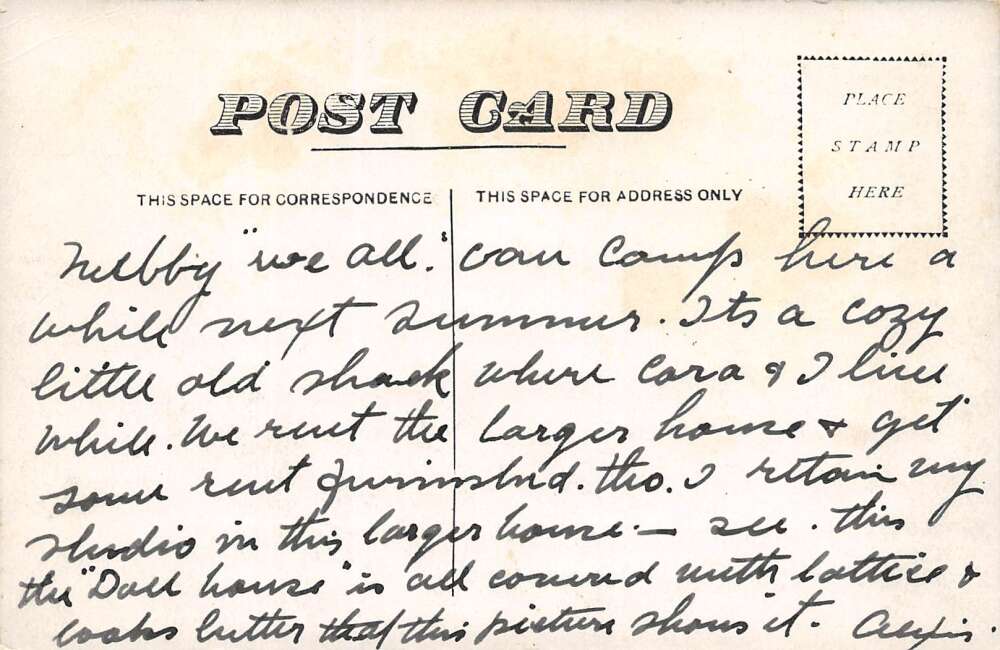 POST CARD
PLACE
STAMP
HERE
THIS SPACE FOR CORRESPONDENCE
THIS SPACE FOR ADDRESS ONLY
"we all." can camp here a
while next summer. Its a cozy
little old shack where Cora & I live
while. We rent the larger house & get
some rent furnished. tho. I retain my
studio in this larger house — see. this
the "Doll house" is all covered with lattice &
looks better that this picture shows it. Alexis.